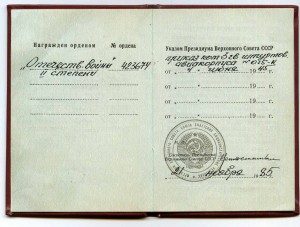 Награжден орденом № ордена
„Отечеств. войны" 423674
II степени
Указом Президиума Верховного Совета СССР
приказ ком. 5 гв. штурмов.
авиакорпуса № 075-н
от „4" июня 1945 г.
от „ " 19 г.
от „ " 19 г.
от „ " 19 г.
от „ " 19 г.
„21" ноября 1985